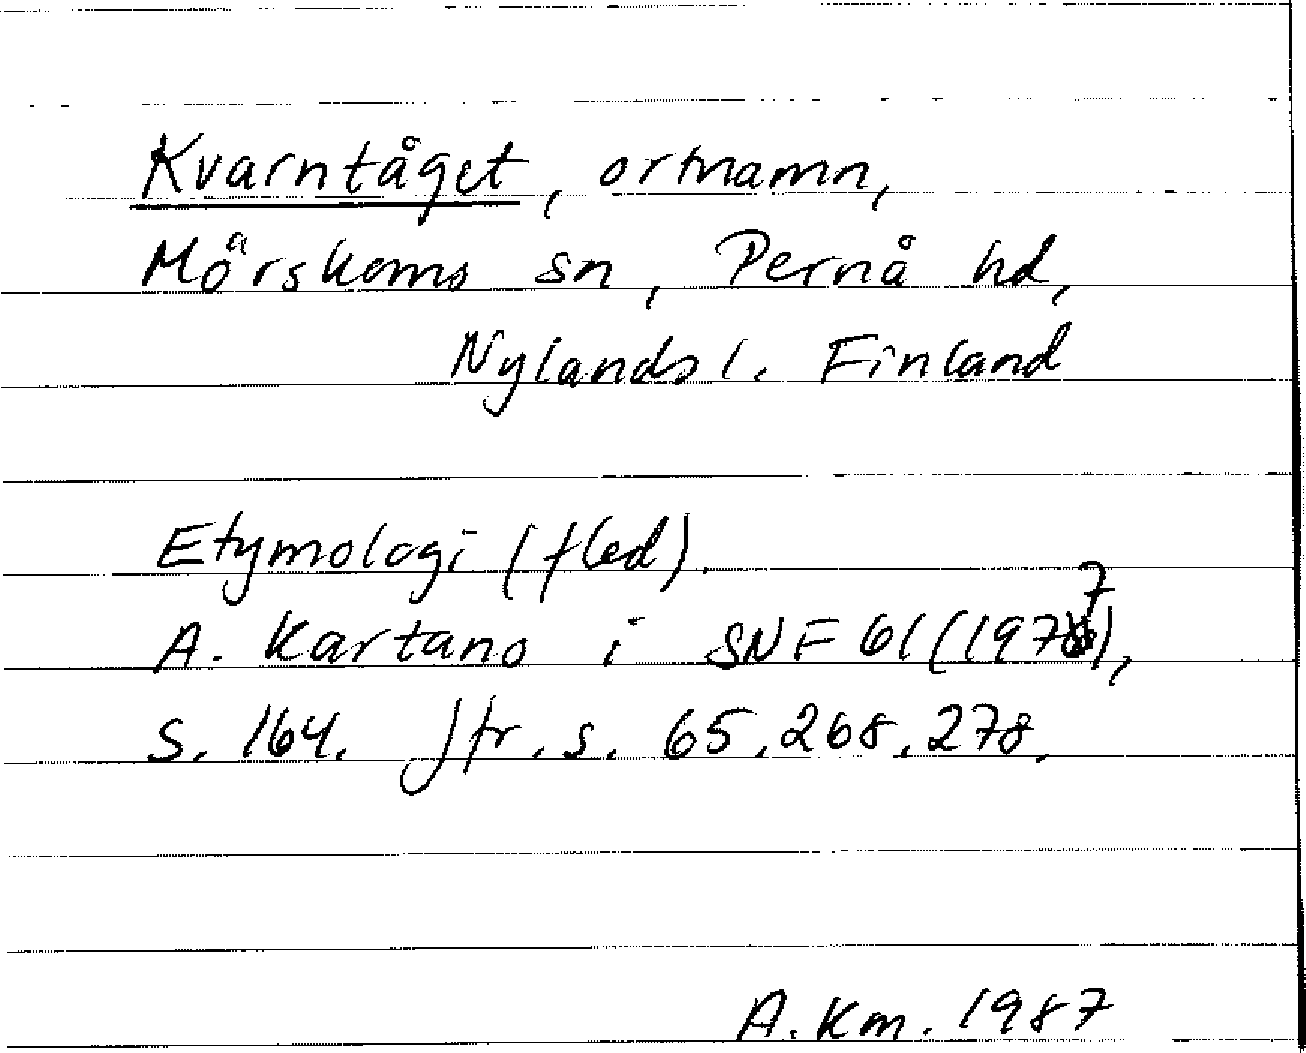 Kvarntåget, ortnamn,
Mörskoms sn, Pernå hd,
Nylands l. Finland
Etymologi (fled).
A. Kartano i SNF 61 (1977),
s. 164. Jfr. s. 65, 268, 278.
A. Km. 1987